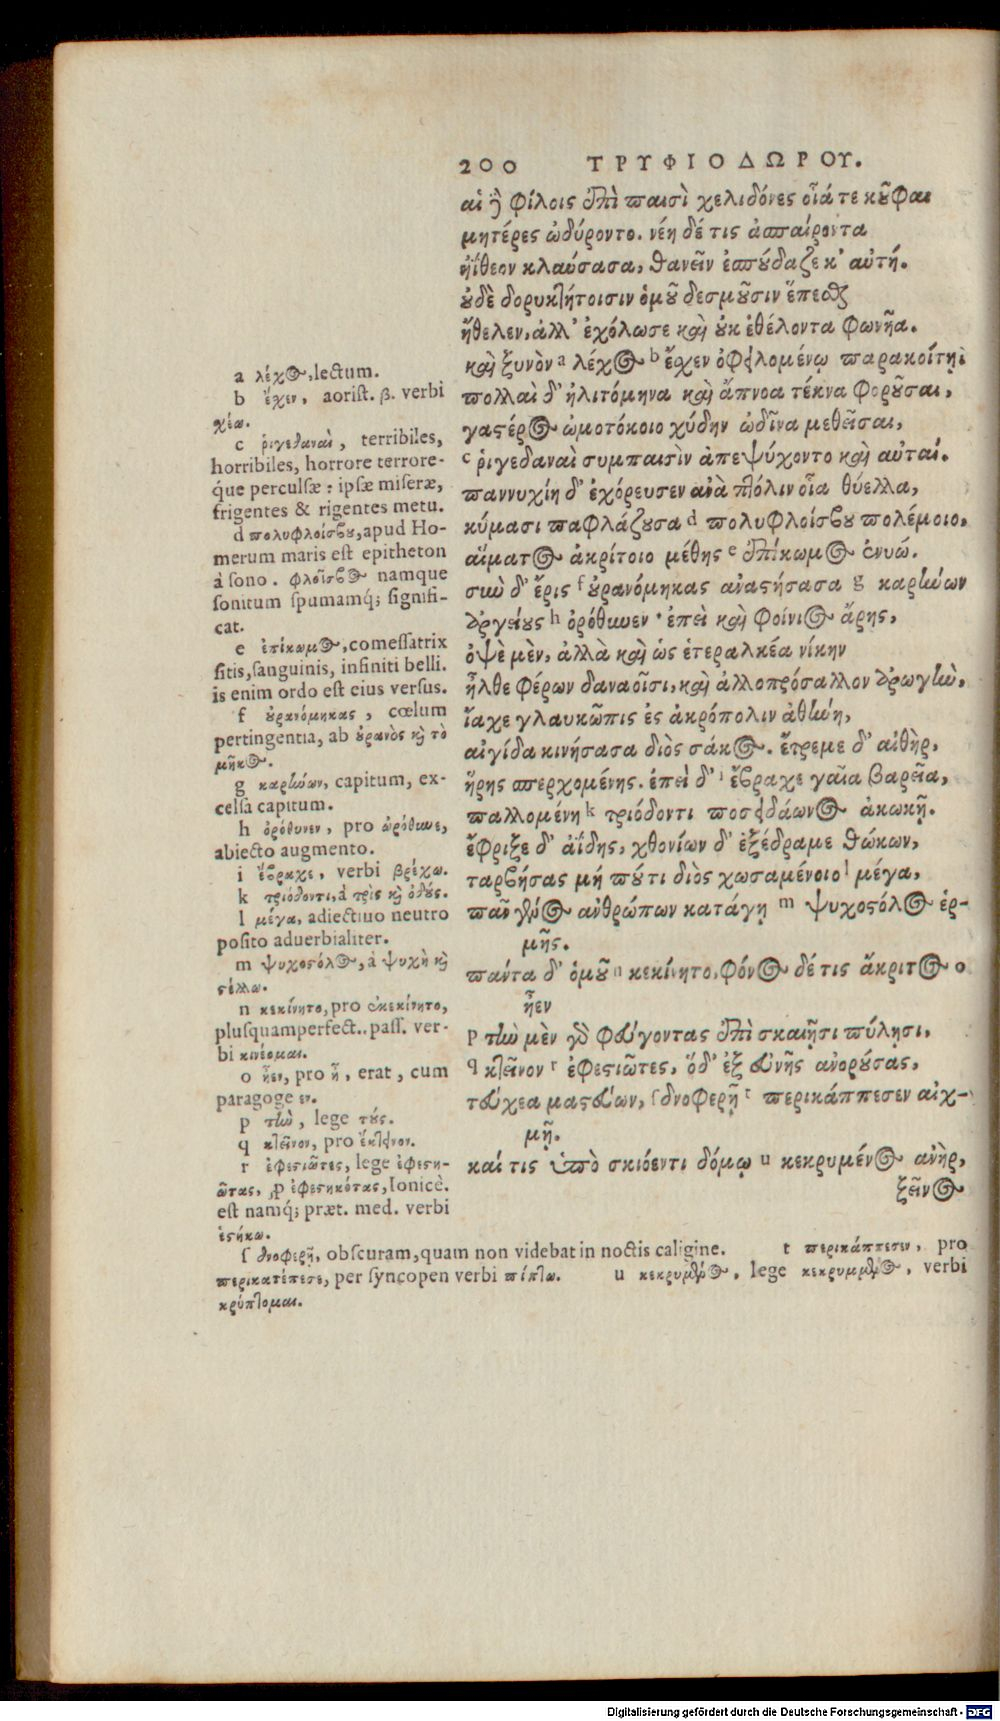 200 ΤΡΥΦΙΟΔΩΡΟΥ.
αἱ ἢ φίλοις ἐπὶ παισὶ χελιδόνες οἷά τε κοῦφαι
μητέρες ὠδύροντο. νέη δέ τις ἀσπαίροντα
ἠΐθεον κλαύσασα, θανεῖν ἐσπούδαζε κ' αὐτή.
οὐδὲ δορυκτήτοισιν ὁμοῦ δεσμοῦσιν ἕπεσθαι
ἤθελεν, ἀλλ' ἐχόλωσε καὶ οὐκ ἐθέλοντα φωνῆα.
καὶ ξυνὸν a λέχος b ἔχεν ὀφειλομένῳ παρακοίτῃ
πολλαὶ δ' ἠλιτόμηνα καὶ ἄπνοα τέκνα φοροῦσαι,
γαστέρος ὠμοτόκοιο χύδην ὠδῖνα μεθεῖσαι,
c ῥιγεδαναὶ συμπαισὶν ἀπεψύχοντο καὶ αὐταί.
παννυχίη δ' ἐχόρευσεν ἀνὰ πτόλιν οἷα θύελλα,
κύμασι παφλάζουσα d πολυφλοίσβου πολέμοιο,
αἵματος ἀκρίτοιο μέθης e ἐπίκωμος ἐνυώ.
σὺν δ' ἔρις f οὐρανόμηκας ἀναστήσασα g καρήνων
ἀργείους h ὀρόθυνεν· ἐπεὶ καὶ φοίνιος ἄρης,
ὀψὲ μὲν, ἀλλὰ καὶ ὡς ἑτεραλκέα νίκην
ἦλθε φέρων δαναοῖσι, καὶ ἀλλοπρόσαλλον ἀρωγὴν,
ἴαχε γλαυκῶπις ἐς ἀκρόπολιν ἀθήνη,
αἰγίδα κινήσασα διὸς σάκος. ἔτρεμε δ' αἰθὴρ,
ἥρης σπερχομένης. ἐπεὶ δ' i ἔβραχε γαῖα βαρεῖα,
παλλομένη k τριόδοντι ποσειδάωνος ἀκωκῇ.
ἔφριξε δ' ἀΐδης, χθονίων δ' ἐξέδραμε θώκων,
ταρβήσας μή πού τι διὸς χωσαμένοιο l μέγα,
πᾶν γένος ἀνθρώπων κατάγῃ m ψυχοστόλος ἑρ-
μῆς.
πάντα δ' ὁμοῦ n κεκίνητο, φόνος δέ τις ἄκριτος o
ἦεν
p τὴν μὲν γὰρ φεύγοντας ἐπὶ σκαιῇσι πύλῃσι,
q κτεῖνον r ἐφεστιῶτες, ὅδ' ἐξ εὐνῆς ἀνορούσας,
τεύχεα μαστεύων, s δνοφερῇ t περικάππεσεν αἰχ-
μῇ.
καί τις ὑπὸ σκιόεντι δόμῳ u κεκρυμένος ἀνὴρ,
ξεῖνος
a λέχος, lectum.
b ἔχεν, aorist. β. verbi
χέω.
c ῥιγεδαναὶ, terribiles,
horribiles, horrore terrore-
q́ue perculsæ: ipsæ miseræ,
frigentes & rigentes metu.
d πολυφλοίσβου, apud Ho-
merum maris est epitheton
à sono. φλοῖσβος namque
sonitum spumamq́; signifi-
cat.
e ἐπίκωμος, comessatrix
sitis, sanguinis, infiniti belli.
is enim ordo est eius versus.
f οὐρανόμηκας, cœlum
pertingentia, ab οὐρανὸς καὶ τὸ
μῆκος.
g καρήνων, capitum, ex-
celsa capitum.
h ὀρόθυνεν, pro ὠρόθυνε,
abiecto augmento.
i ἔβραχε, verbi βρέχω.
k τριόδοντι, à τρὶς καὶ ὀδούς.
l μέγα, adiectiuo neutro
posito aduerbialiter.
m ψυχοστόλος, à ψυχὴ καὶ
στέλλω.
n κεκίνητο, pro ἐκεκίνητο,
plusquamperfect.. pass. ver-
bi κινέομαι.
o ἦεν, pro ἦ, erat, cum
paragoge εν.
p τὴν, lege τούς.
q κτεῖνον, pro ἔκτεινον.
r ἐφεστιῶτες, lege ἐφεστη-
ῶτας, pro ἐφεστηκότας, Ionicè.
est namq́; præt. med. verbi
ἑστήκω.
s δνοφερῇ, obscuram, quam non videbat in noctis caligine. t περικάππεσεν, pro
περικατέπεσε, per syncopen verbi πίπτω. u κεκρυμένος, lege κεκρυμμένος, verbi
κρύπτομαι.
Digitalisierung gefördert durch die Deutsche Forschungsgemeinschaft - DFG